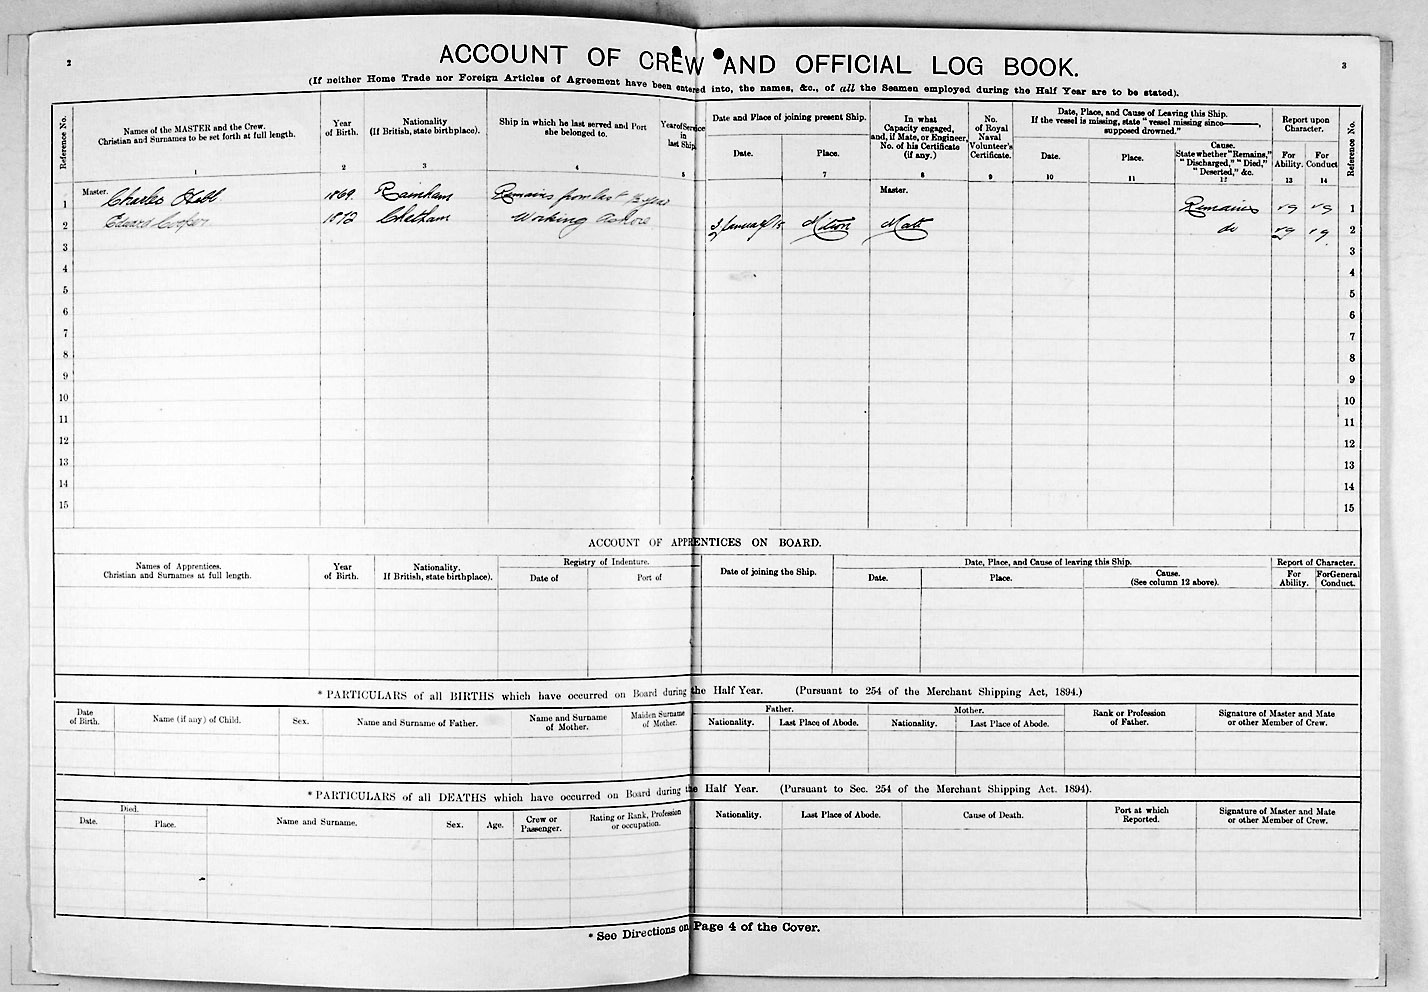 2
ACCOUNT OF CREW AND OFFICIAL LOG BOOK.
3
(If neither Home Trade nor Foreign Articles of Agreement have been entered into, the names, &c., of all the Seamen employed during the Half Year are to be stated).
Reference No.
Names of the MASTER and the Crew.
Christian and Surnames to be set forth at full length.
1
Year
of Birth.
2
Nationality
(If British, state birthplace).
3
Ship in which he last served and Port
she belonged to.
4
Year of Service
in
last Ship.
5
Date and Place of joining present Ship.
Date.
Place.
7
In what
Capacity engaged,
and, if Mate, or Engineer,
No. of his Certificate
(if any.)
8
No.
of Royal
Naval
Volunteer's
Certificate.
9
Date, Place, and Cause of Leaving this Ship.
If the vessel is missing, state "vessel missing since———,
supposed drowned."
Date.
10
Place.
11
Cause.
State whether "Remains,"
"Discharged," "Died,"
"Deserted," &c.
12
Report upon
Character.
For
Ability.
13
For
Conduct
14
Reference No.
1 Master. Charles 1869. Rainham Remains from last ½ year Master. Remains vg vg 1
2 Cooper 1872 Chatham Working ashore January 15 Milton Mate do vg vg 2
3 3
4 4
5 5
6 6
7 7
8 8
9 9
10 10
11 11
12 12
13 13
14 14
15 15
ACCOUNT OF APPRENTICES ON BOARD.
Names of Apprentices.
Christian and Surnames at full length.
Year
of Birth.
Nationality.
If British, state birthplace).
Registry of Indenture.
Date of
Port of
Date of joining the Ship.
Date, Place, and Cause of leaving this Ship.
Date.
Place.
Cause.
(See column 12 above).
Report of Character.
For
Ability.
For General
Conduct.
* PARTICULARS of all BIRTHS which have occurred on Board during the Half Year. (Pursuant to 254 of the Merchant Shipping Act, 1894.)
Date
of Birth.
Name (if any) of Child.
Sex.
Name and Surname of Father.
Name and Surname
of Mother.
Maiden Surname
of Mother.
Father.
Nationality.
Last Place of Abode.
Mother.
Nationality.
Last Place of Abode.
Rank or Profession
of Father.
Signature of Master and Mate
or other Member of Crew.
* PARTICULARS of all DEATHS which have occurred on Board during the Half Year. (Pursuant to Sec. 254 of the Merchant Shipping Act. 1894).
Died.
Date.
Place.
Name and Surname.
Sex.
Age.
Crew or
Passenger.
Rating or Rank, Profession
or occupation.
Nationality.
Last Place of Abode.
Cause of Death.
Port at which
Reported.
Signature of Master and Mate
or other Member of Crew.
* See Directions on Page 4 of the Cover.